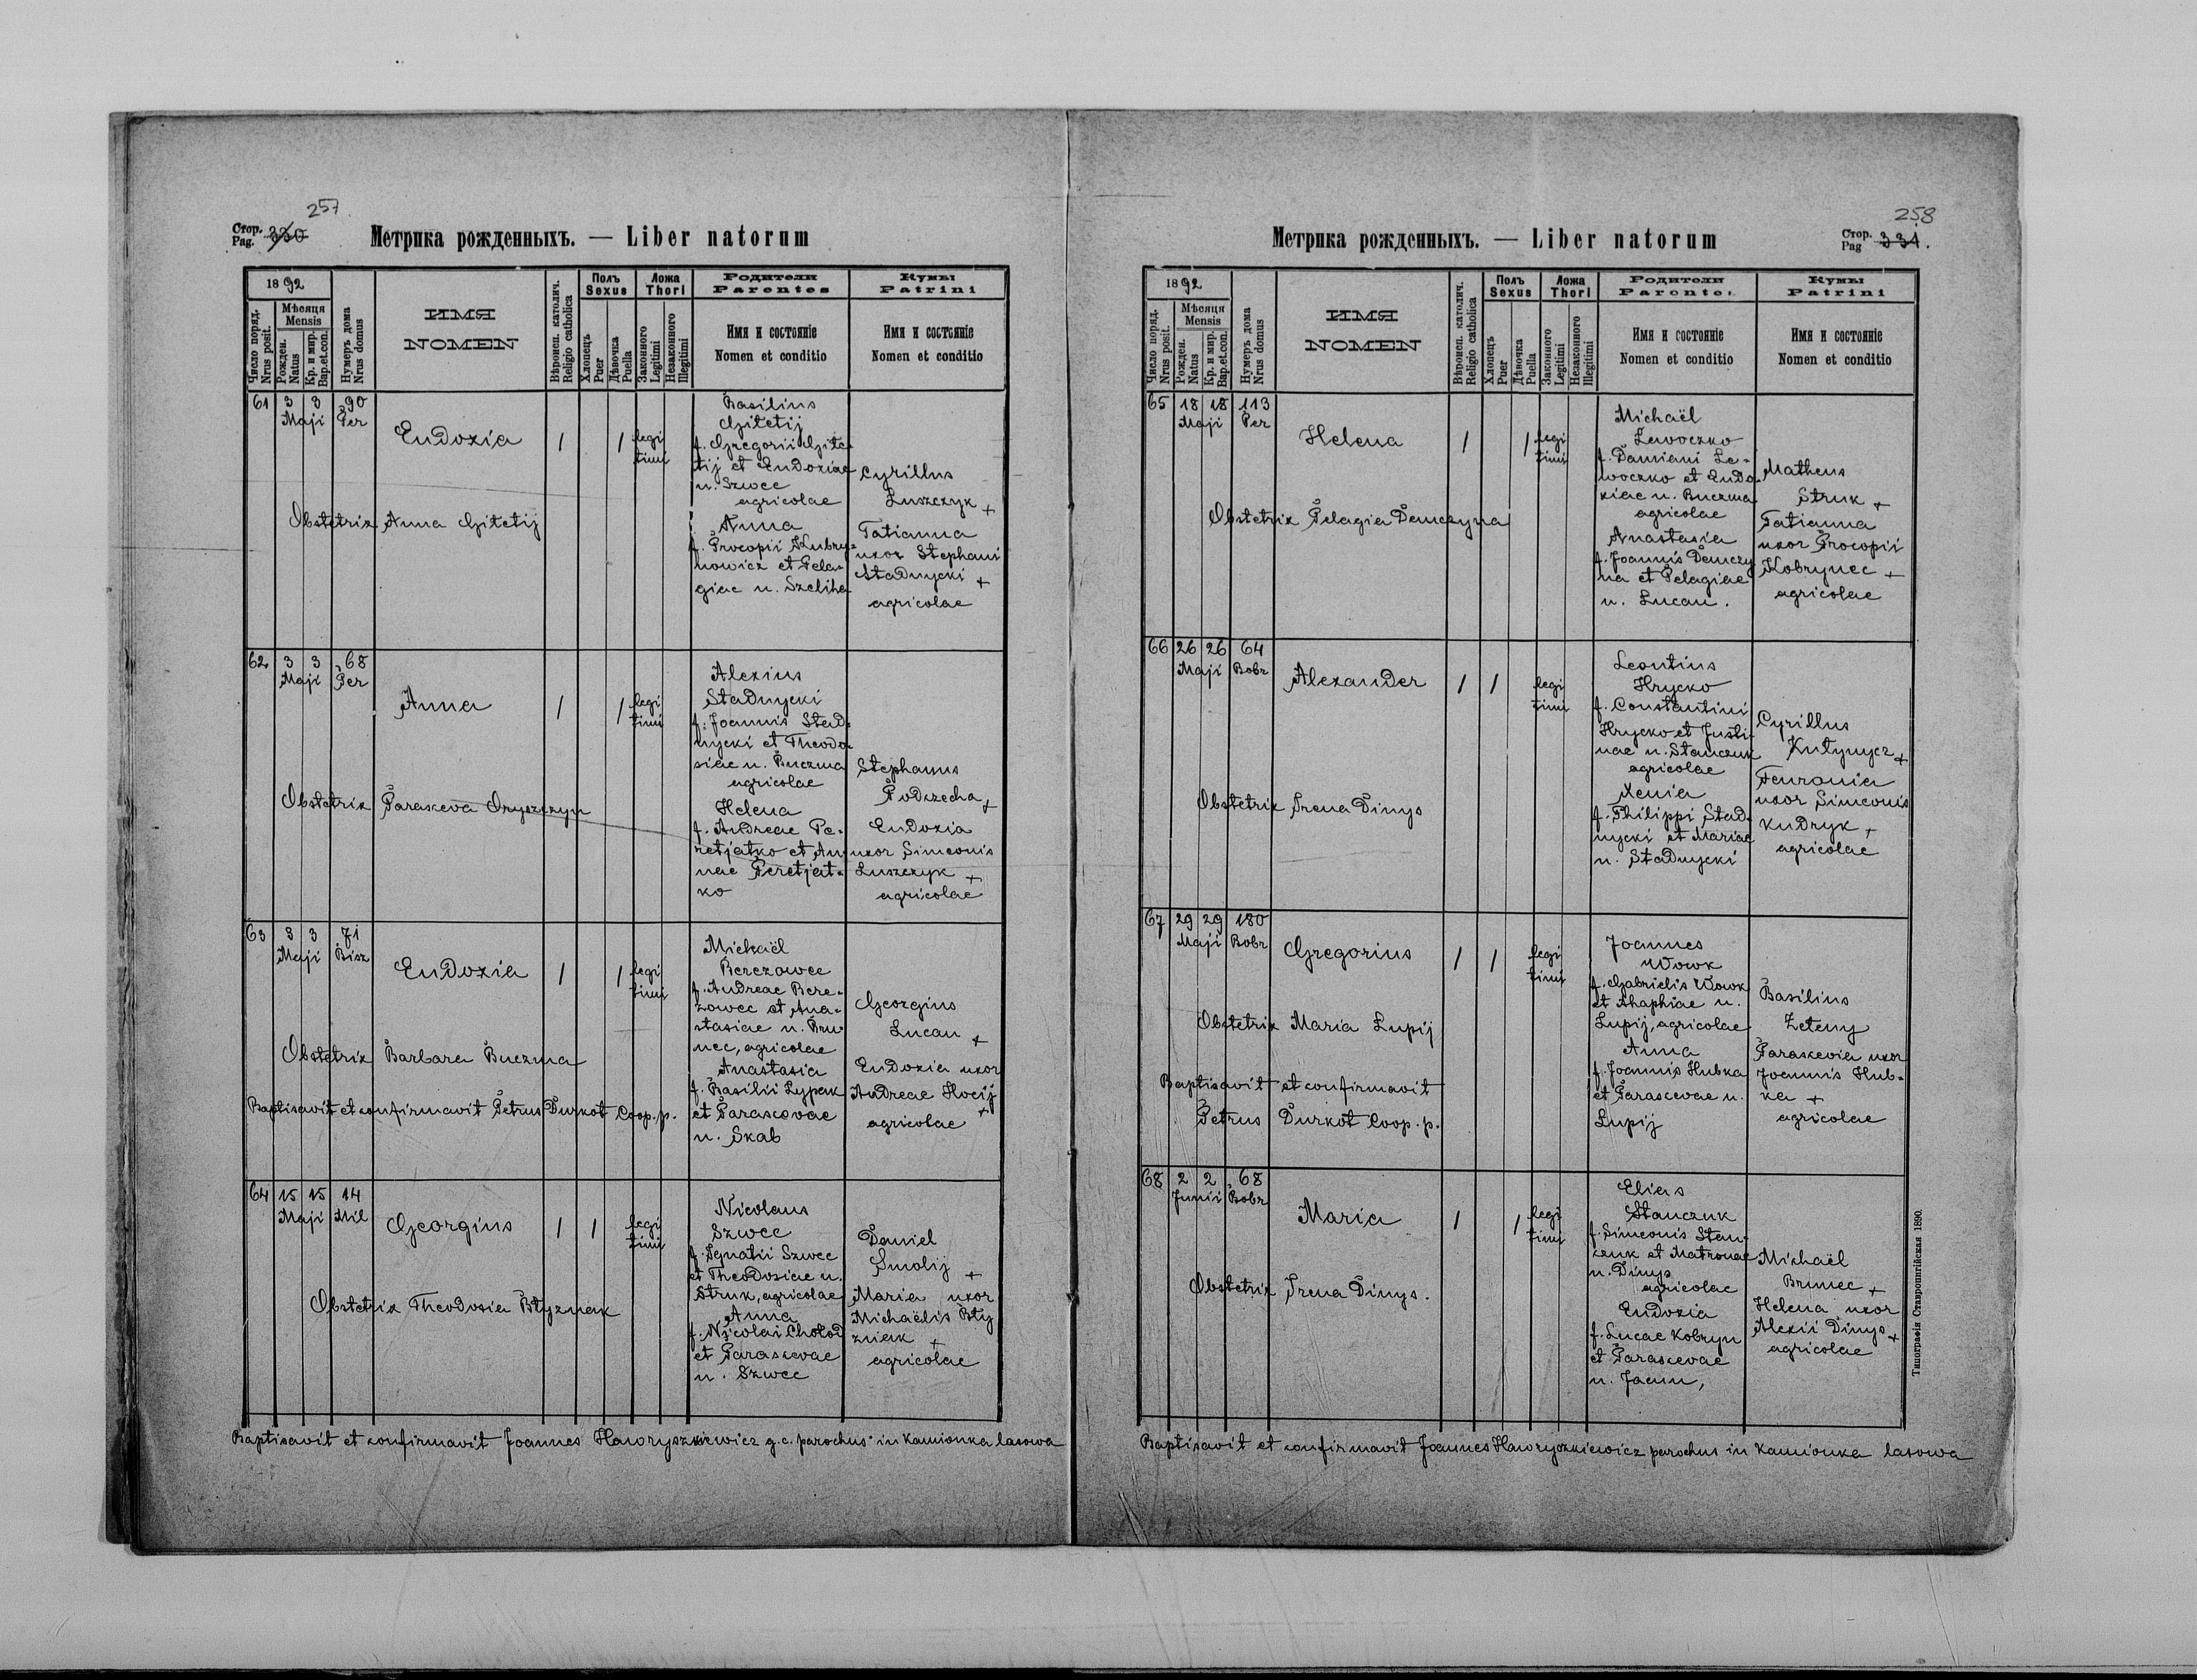 257
Стор. Pag. 330
Метрика рожденныхъ. — Liber natorum
1892
Число поряд. Nrus posit.
Мѣсяця Mensis
Рожден. Natus
Кр. и мир. Bap.et.con.
Нумеръ дома Nrus domus
ИМЯ
NOMEN
Вѣроисп. католич. Religio catholica
Полъ Sexus
Хлопецъ Puer
Дѣвочка Puella
Ложа Thori
Законного Legitimi
Незаконного Illegitimi
Родители
Parentes
Имя и состоянiе
Nomen et conditio
Кумы
Patrini
Имя и состоянiе
Nomen et conditio
61 3 3 90
Maji Per
Eudoxia 1 1 legi
timi
Obstetrix Anna Gitetij
Basilius
Gitetij
f. Gregorii Gite-
tij et Eudoxiae
n. Szwec
agricolae
Anna
f. Procopii Kubry-
nowicz et Pela-
giae n. Szeliha
Cyrillus
Luszczyk +
Tatianna
uxor Stephani
Stadnycki +
agricolae
62 3 3 68
Maji Per
Anna 1 1 legi
timi
Obstetrix Parasceva Onyszczyn
Alexius
Stadnycki
f. Joannis Stad-
nycki et Theodo-
siae n. Buczma
agricolae
Helena
f. Andreae Pe-
retjatko et An-
nae Peretjat-
ko
Stephanus
Podzecha +
Eudoxia
uxor Simeonis
Luszczyk +
agricolae
63 3 3 71
Maji Bisz
Eudoxia 1 1 legi
timi
Obstetrix Barbara Buczma
Baptisavit et confirmavit Petrus Durkot Coop. p.
Michaël
Berezowec
f. Andreae Bere-
zowec et Ana-
stasiae n. Bru-
nec, agricolae
Anastasia
f. Basilii Lypak
et Parascevae
n. Skab
Georgius
Lucau +
Eudoxia uxor
Andreae Hocij
+
agricolae
64 15 15 14
Maji Mil
Georgius 1 1 legi
timi
Obstetrix Theodosia Btyzniak
Nicolaus
Szwec
f. Ignatii Szwec
et Theodosiae n.
Struk, agricolae
Anna
f. Nicolai Chołod
et Parascevae
n. Szwec
Daniel
Smolij +
Maria uxor
Michaëlis Bty
zniak +
agricolae
Baptisavit et confirmavit Joannes Hawryszkiewicz g.c. parochus in Kamionka lasowa
258
Метрика рожденныхъ. — Liber natorum
Стор. Pag 331.
1892
Число поряд. Nrus posit.
Мѣсяця Mensis
Рожден. Natus
Кр. и мир. Bap.et.con.
Нумеръ дома Nrus domus
ИМЯ
NOMEN
Вѣроисп. католич. Religio catholica
Полъ Sexus
Хлопецъ Puer
Дѣвочка Puella
Ложа Thori
Законного Legitimi
Незаконного Illegitimi
Родители
Parentes
Имя и состоянiе
Nomen et conditio
Кумы
Patrini
Имя и состоянiе
Nomen et conditio
65 18 18 113
Maji Per
Helena 1 1 legi
timi
Obstetrix Pelagia Demczyna
Michaël
Lewoczko
f. Damiani Le-
woczko et Eudo-
xiae n. Buczma
agricolae
Anastasia
f. Joannis Demczy
na et Pelagiae
n. Lucau.
Matheus
Struk +
Tatianna
uxor Procopii
Kobrynec +
agricolae
66 26 26 64
Maji Bobr
Alexander 1 1 legi
timi
Obstetrix Irena Dinys
Leontius
Hrycko
f. Constantini
Hrycko et Justi-
nae n. Stanczuk
agricolae
Xenia
f. Philippi Stad-
nycki et Mariae
n. Stadnycki
Cyrillus
Kutynycz +
Feuronia
uxor Simeonis
Kudryk +
agricolae
67 29 29 180
Maji Bobr
Gregorius 1 1 legi
timi
Obstetrix Maria Lupij
Baptisavit et confirmavit
Petrus Durkot Coop. p.
Joannes
Wowk
f. Gabrielis Wowk
et Ahaphiae n.
Lupij, agricolae
Anna
f. Joannis Hubka
et Parascevae n.
Lupij
Basilius
Zeteny
Parascevia uxor
Joannis Hub-
ka +
agricolae
68 2 2 68
Junii Bobr
Maria 1 1 legi
timi
Obstetrix Irena Dinys.
Elias
Stanczuk
f. Simeonis Stan-
czuk et Matronae
n. Dinys
agricolae
Eudoxia
f. Lucae Kobryn
et Parascevae
n. Jacun,
Michaël
Brunec +
Helena uxor
Alexii Dinys +
agricolae
Baptisavit et confirmavit Joannes Hawryszkiewicz parochus in Kamionka lasowa
Типографія Ставропигійская 1890.